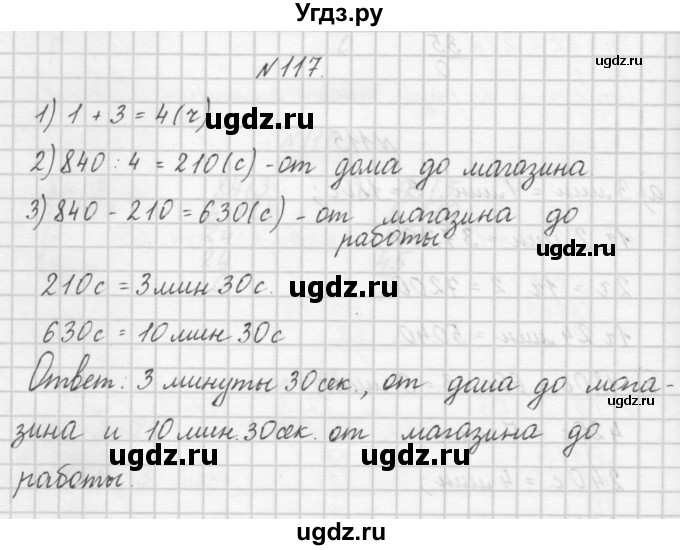 Угдз.ру
N117.
ugdz.ru
1) 1 + 3 = 4(ч)
ugdz.ru
2) 840 : 4 = 210(с) - от дома до магазина
3) 840 - 210 = 630(с) - от магазина до
работы
ugdz.ru
ugdz.ru
210с = 3мин 30с.
ugdz.ru
630с = 10мин 30с
ugdz.ru
Ответ: 3 минуты 30сек., от дома до мага-
ugdz.ru
зина и 10мин.30сек. от магазина до
ugdz.ru
ugdz.ru
работы.
ugdz.ru